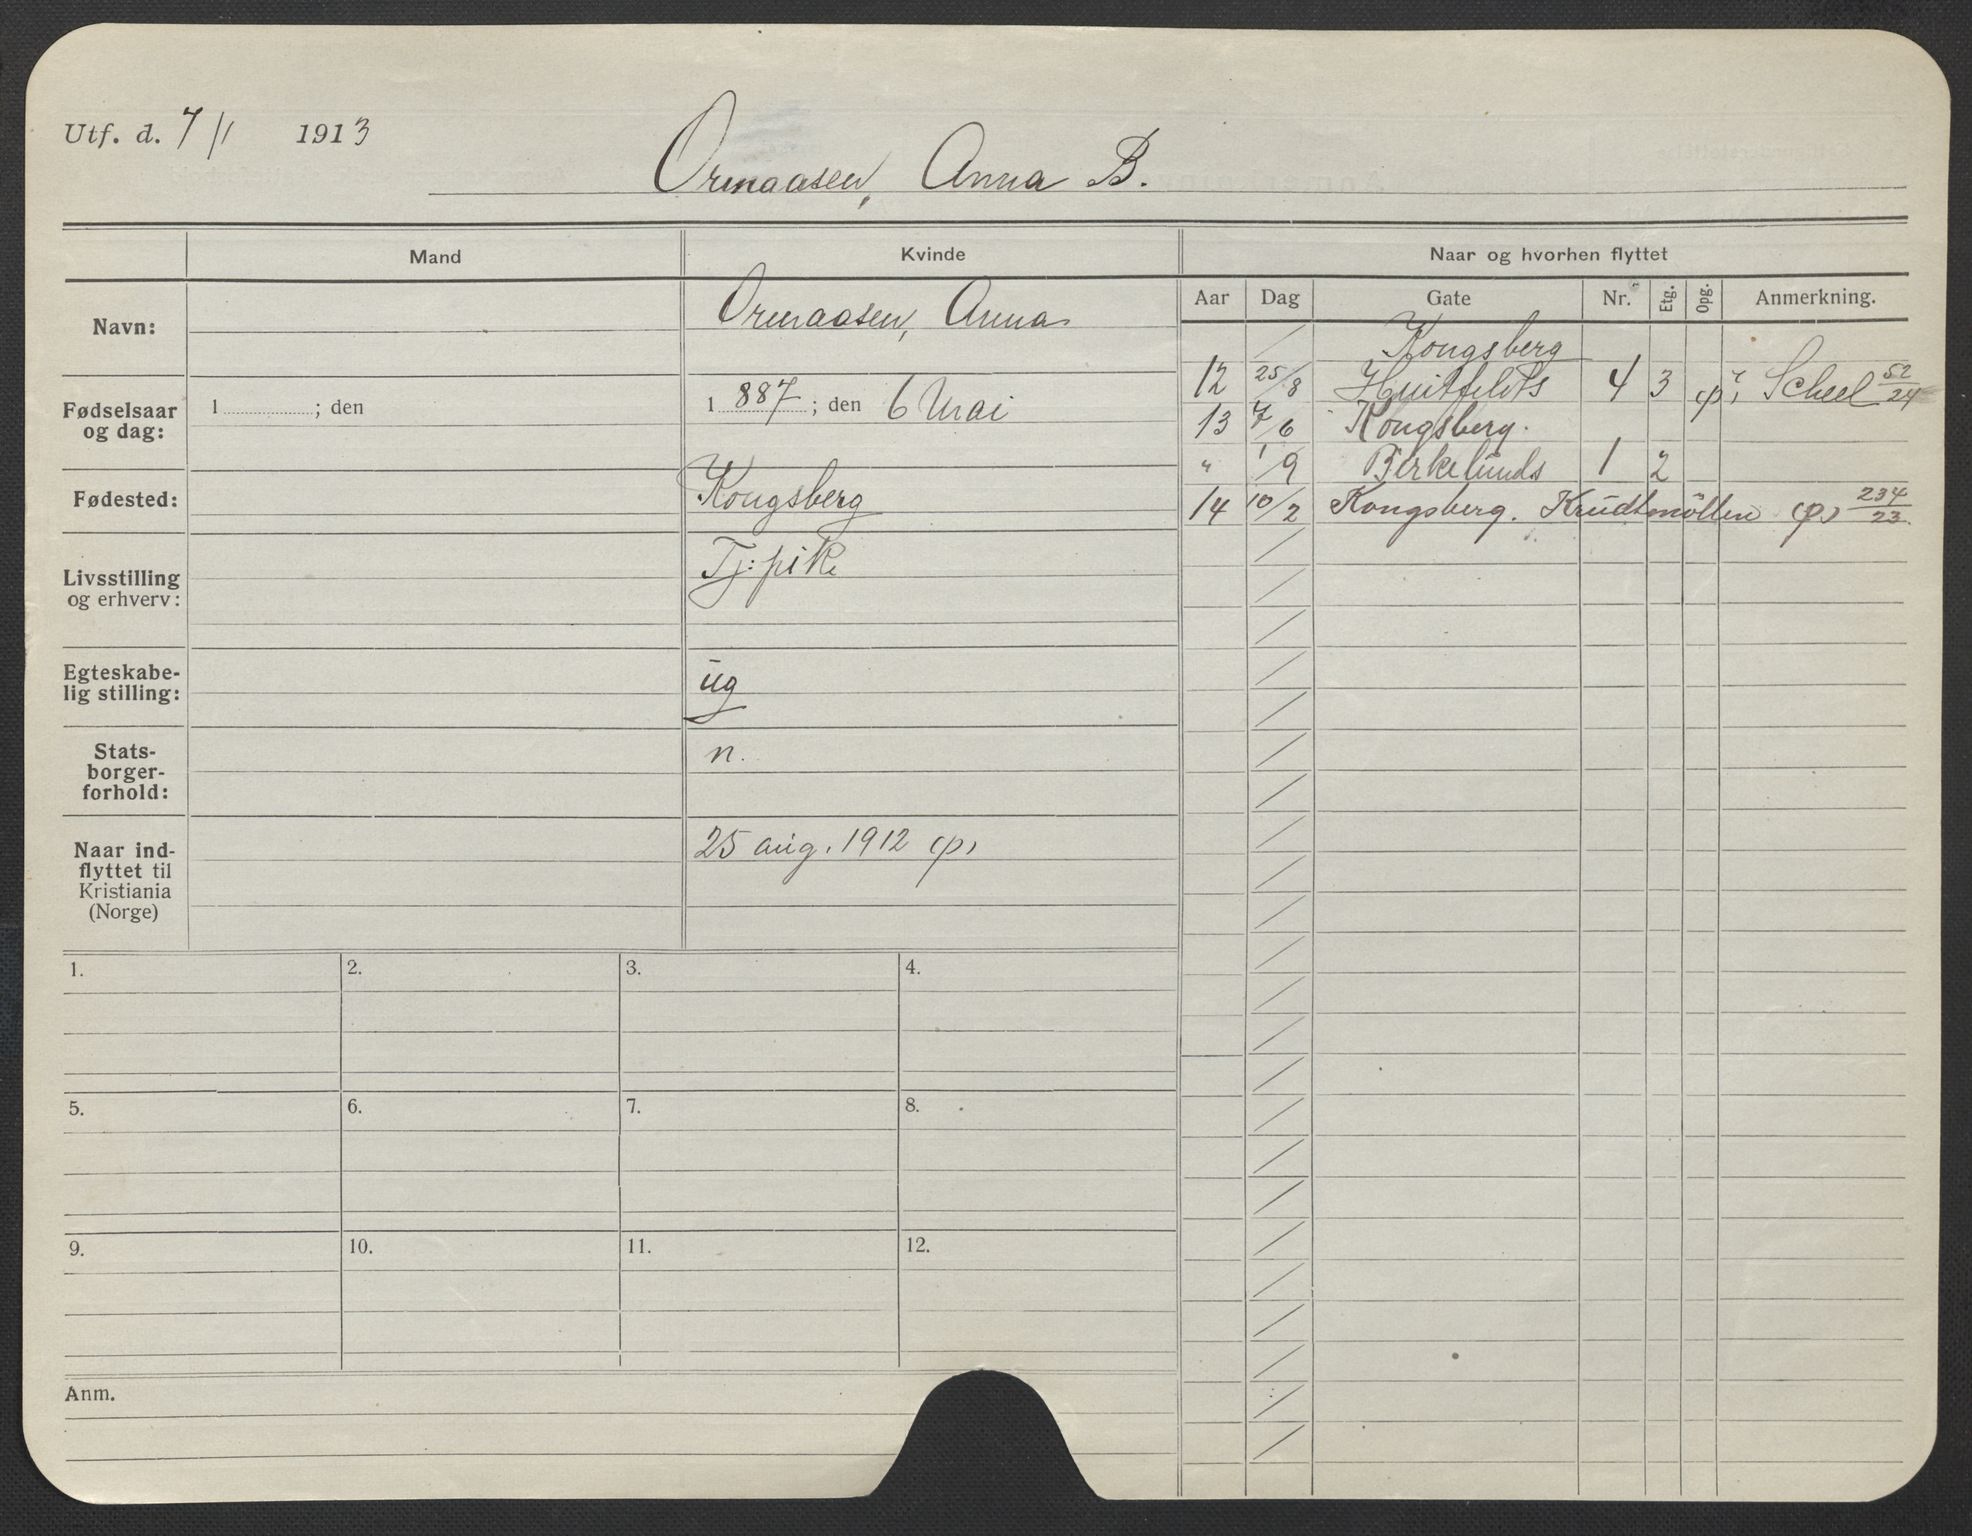 Utf. d. 7/1 1913
Ormaasen, Anna B.
Mand
Kvinde
Naar og hvorhen flyttet
Navn:
Ormaasen, Anna
Fødselsaar og dag:
1 ; den
1 887 ; den 6 Mai
Fødested:
Kongsberg
Livsstilling og erhverv:
Tj: pike
Egteskabe-
lig stilling:
ug
Stats-
borger-
forhold:
n.
Naar ind-
flyttet til
Kristiania
(Norge)
25 aug. 1912 (p)
Aar Dag Gate Nr. Etg. Opg. Anmerkning.
Kongsberg
12 25/8 Huitfeldts 4 3 (p) Scheel 52/24
13 7/6 Kongsberg.
" 1/9 Birkelunds 1 2
14 10/2 Kongsberg. Krudtmöllen (p) 234/23.
1. 2. 3. 4.
5. 6. 7. 8.
9. 10. 11. 12.
Anm.